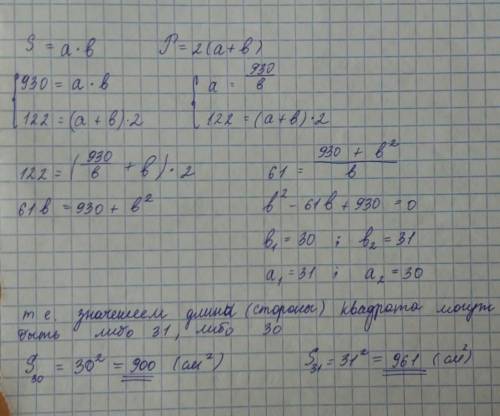 S = a · в     P = 2(a+в)
{930 = a · в     {a = 930/в
122 = (a+в)·2     122 = (a+в)·2
122 = (930/в + в) · 2     61 = (930 + в²)/в
61в = 930 + в²     в² - 61в + 930 = 0
в₁ = 30 ; в₂ = 31
a₁ = 31 ; a₂ = 30
т.е. значением длины (стороны) квадрата может
быть либо 31, либо 30
S₃₀ = 30² = 900 (см²)     S₃₁ = 31² = 961 (см²)